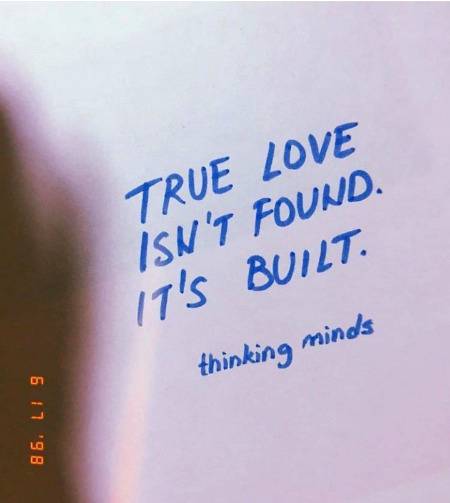 TRUE LOVE
ISN'T FOUND.
IT'S BUILT.
thinking minds
6 17 '98